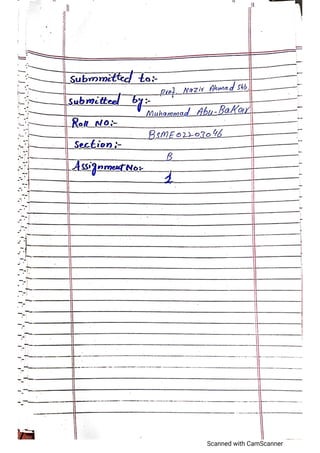 Submmitted to:-
Prof. Nazir Ahmad Sb
Submitted by:-
Muhammad Abu-Bakar
Roll NO:-
BSME02203046
Section:-
B
Assignment No:-
1
Scanned with CamScanner